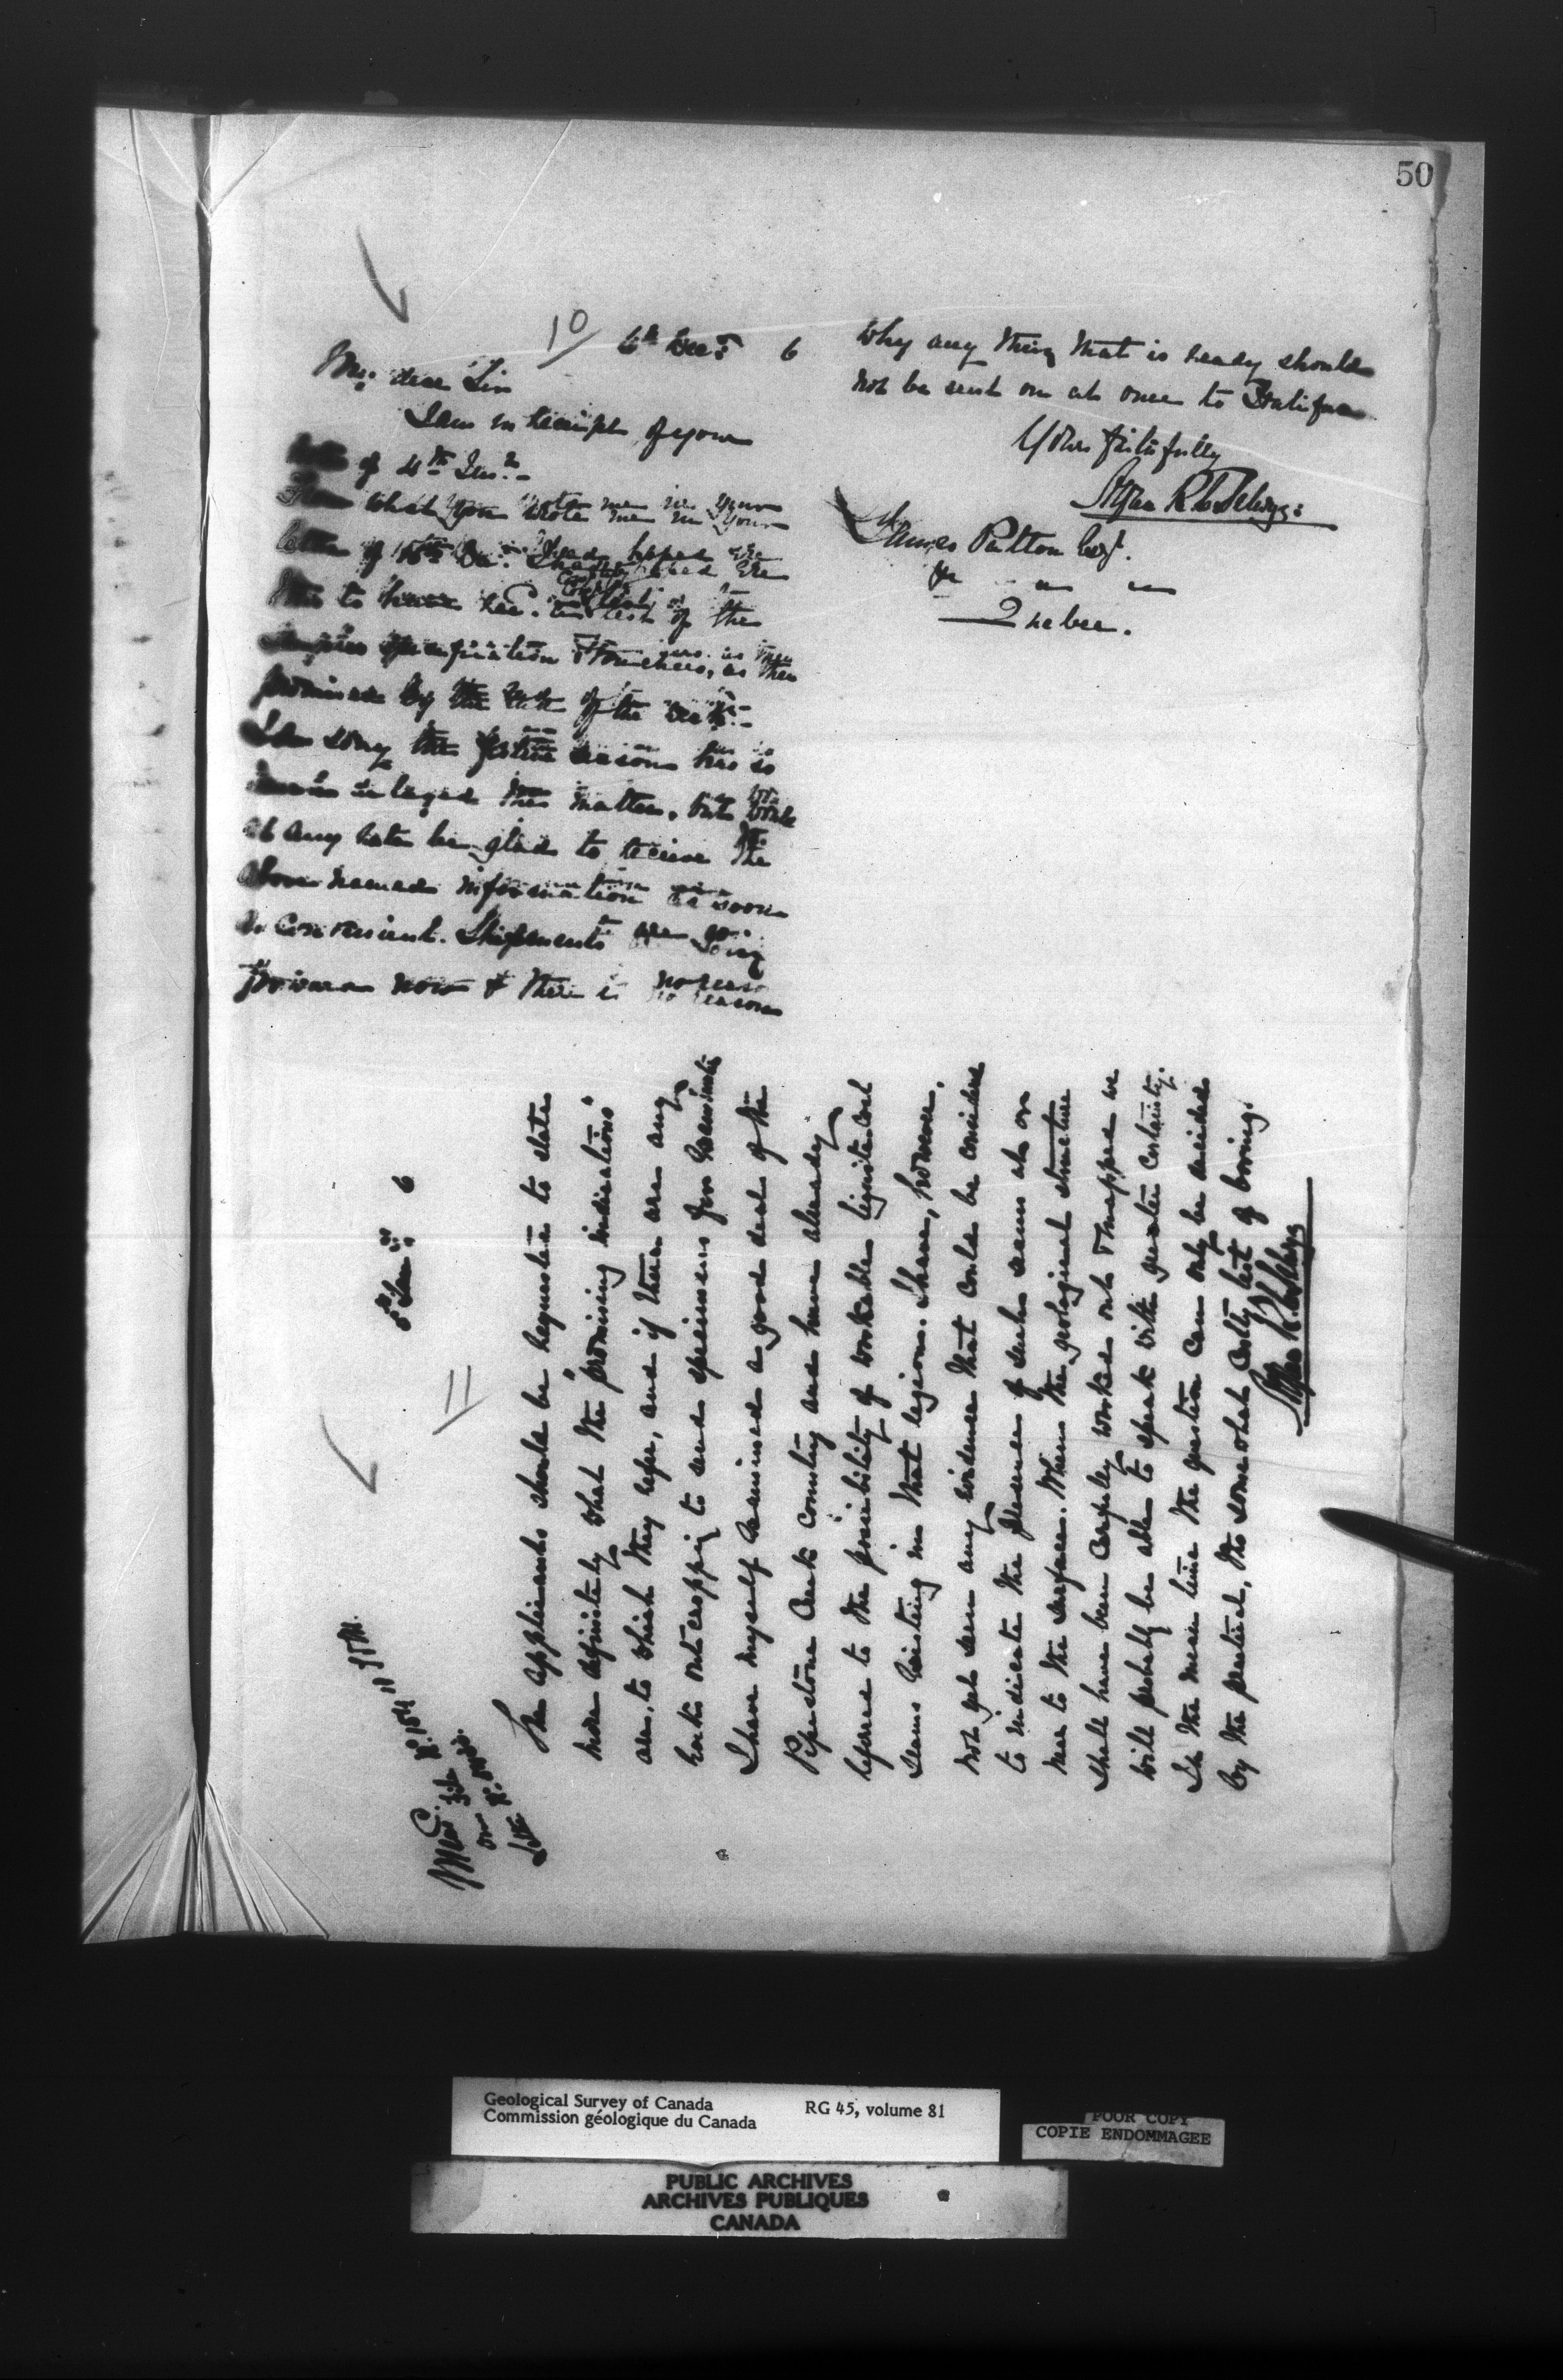 50
10
6th Decr 6
My dear Sir
I am in receipt of your
of 4th Inst
what you wrote me in your
letter of I had hoped ere
this to have rec. list of the
as then
promised by the end of the week
the festive season has so
this matter, but
at any rate be glad to receive the
above named information as soon
as convenient. Shipments are going
forward now & there is no reason
why any thing that is ready should
not be sent on at once to Halifax
Yours faithfully
Alfred R. C. Selwyn
James Patton Esq.
Quebec.
11
8th Jany 6
The applicants should be requested to state
more definitely what the "promising indications"
are, to which they refer, and if there are any
rocks outcropping to send specimens for
I have myself examined a good deal of the
Pipestone Creek country and have already
referred to the possibility of workable lignite coal
seams existing in that region. I have, however,
not yet seen any evidence that could be considered
to indicate the presence of such seams at or
near to the surface. When the geological structure
shall have been carefully worked out & mapped we
will probably be able to speak with greater certainty.
In the mean time the question can only be decided
by the practical, tho somewhat costly test of boring.
Alfred R. C. Selwyn
Geological Survey of Canada
Commission géologique du Canada
RG 45, volume 81
POOR COPY
COPIE ENDOMMAGEE
PUBLIC ARCHIVES
ARCHIVES PUBLIQUES
CANADA